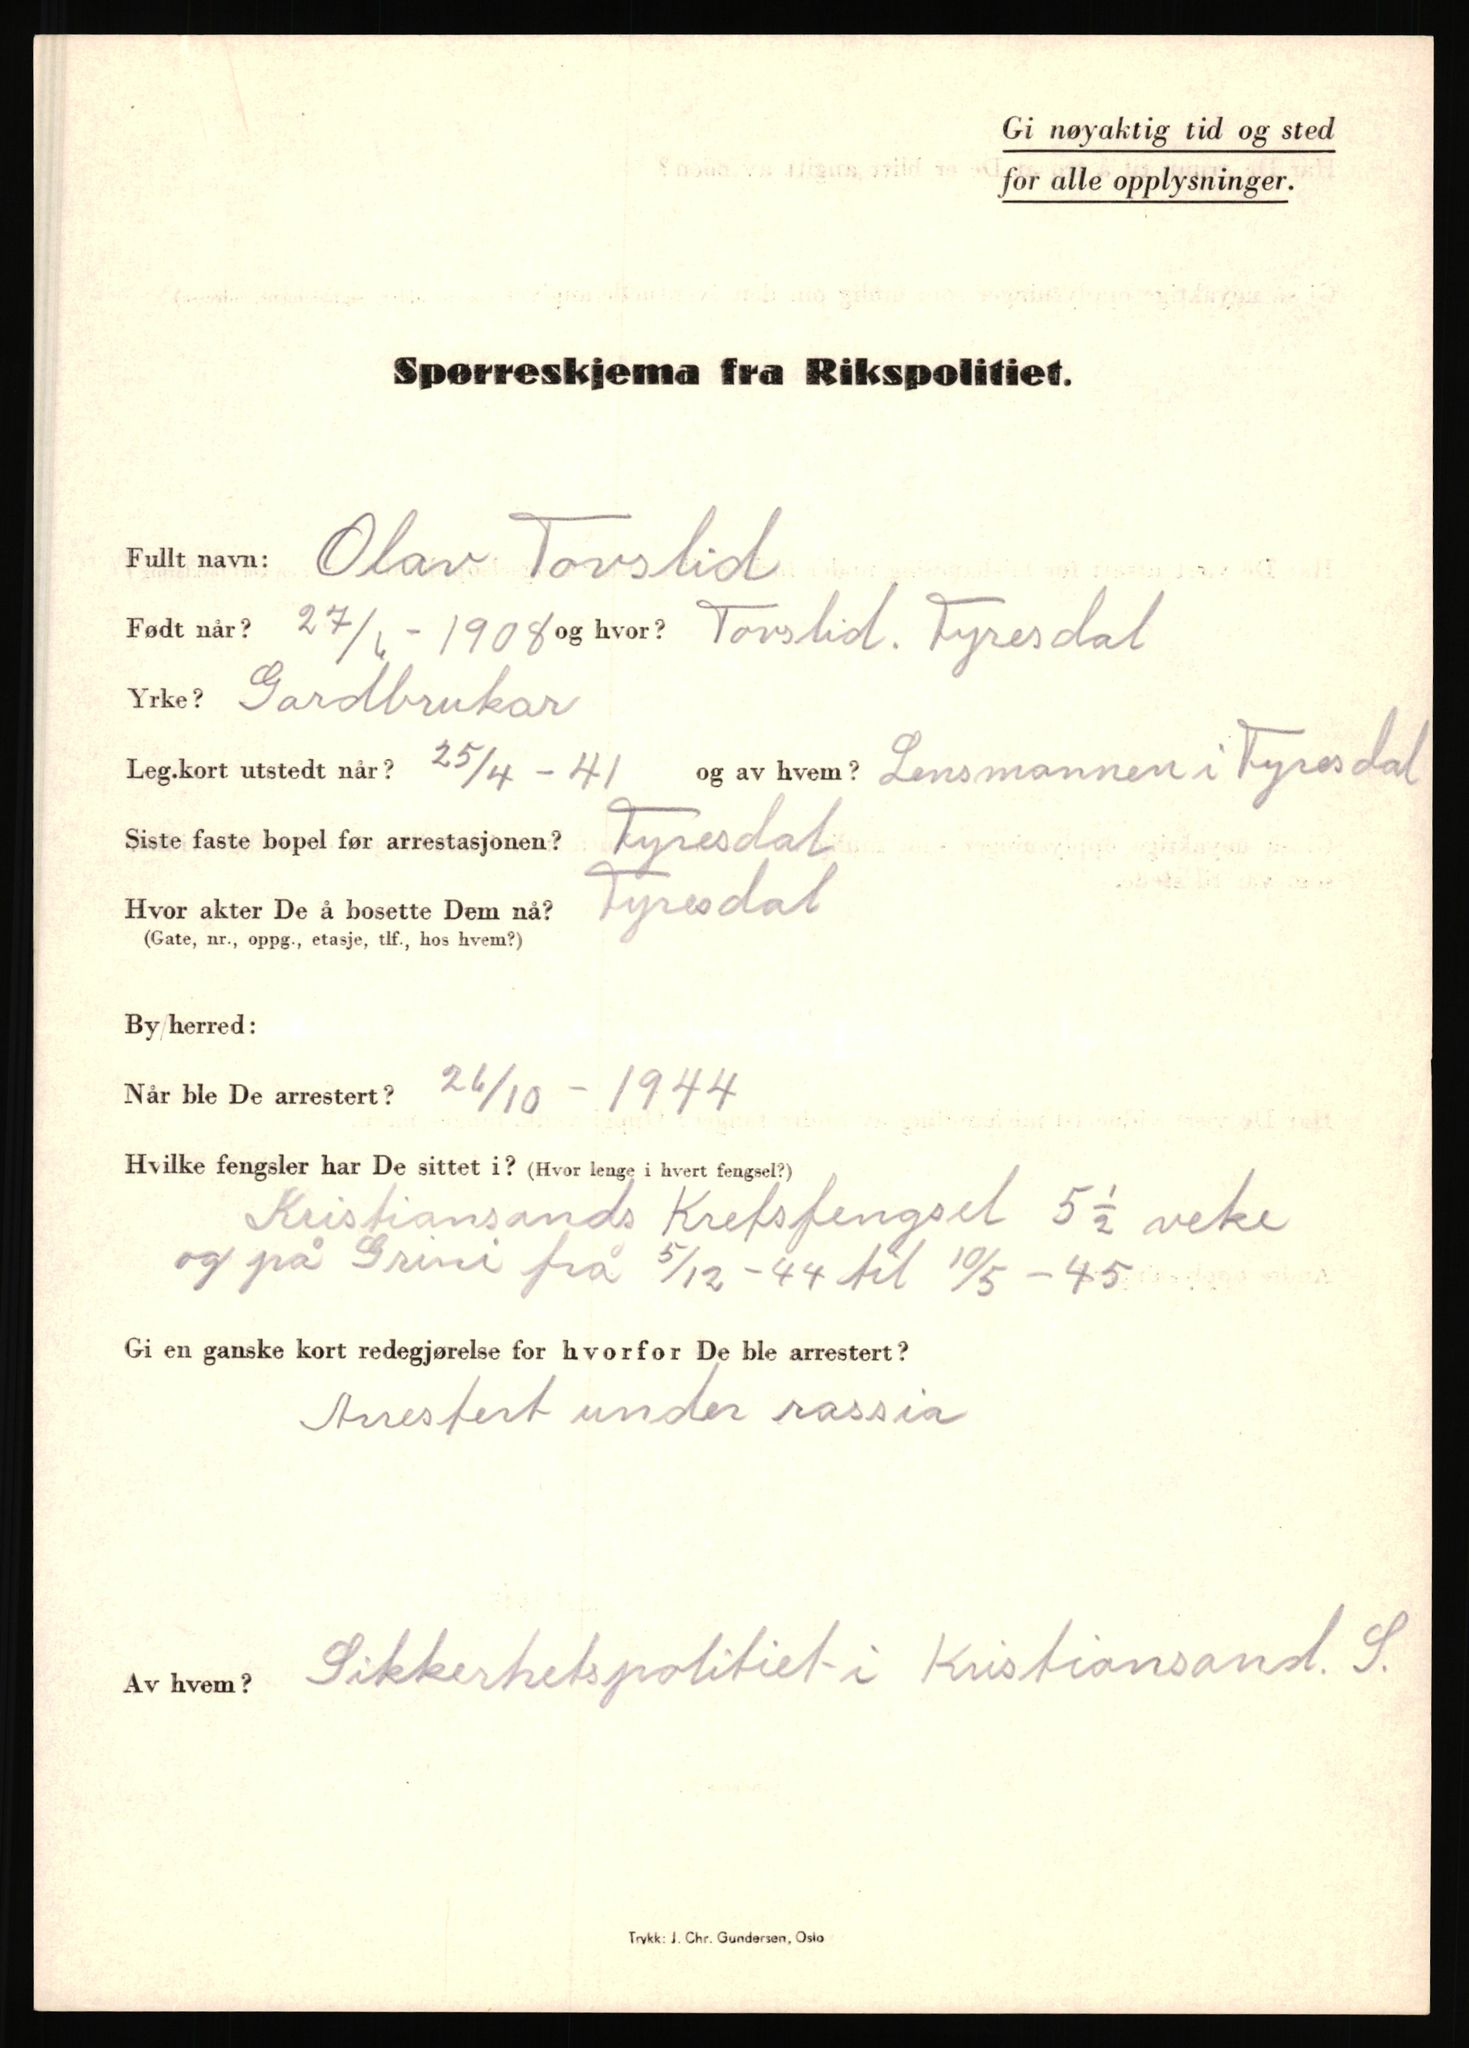 Gi nøyaktig tid og sted
for alle opplysninger.
Spørreskjema fra Rikspolitiet.
Fullt navn: Olav Tovslid
Født når? 27/6 - 1908 og hvor? Tovslid. Fyresdal
Yrke? Gardbrukar
Leg.kort utstedt når? 25/4 - 41 og av hvem? Lensmannen i Fyresdal
Siste faste bopel før arrestasjonen? Fyresdal
Hvor akter De å bosette Dem nå? Fyresdal
(Gate, nr., oppg., etasje, tlf., hos hvem?)
By/herred:
Når ble De arrestert? 26/10 - 1944
Hvilke fengsler har De sittet i? (Hvor lenge i hvert fengsel?)
Kristiansands Kretsfengsel 5 1/2 veke
og på Grini frå 5/12 - 44 til 10/5 - 45
Gi en ganske kort redegjørelse for hvorfor De ble arrestert?
Arrestert under rassia
Av hvem? Sikkerhetspolitiet i Kristiansand. S.
Trykk: J. Chr. Gundersen, Oslo